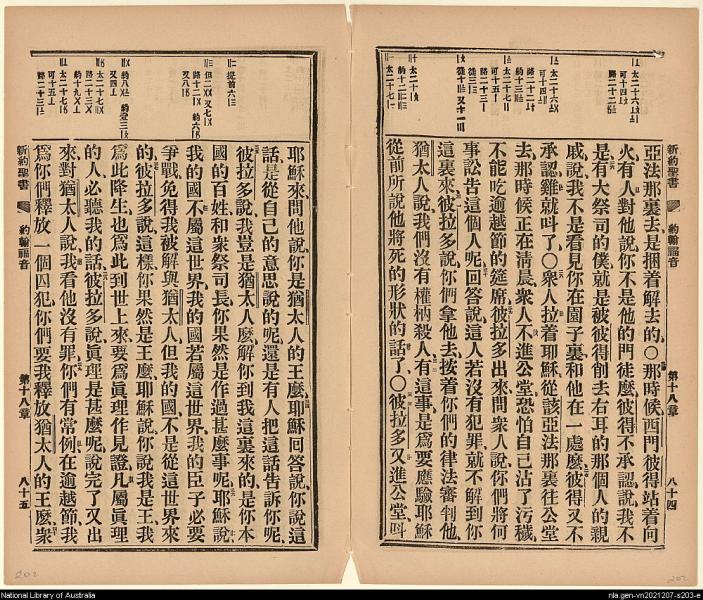 新約聖書
約翰福音
第十八章
八十四
亞法那裏去是捆着解去的〇那時候西門彼得站着向
火有人對他說你不是他的門徒麼彼得不承認說我不
是有大祭司的僕就是被彼得削去右耳的那個人的親
戚說我不是看見你在園子裏和他在一處麼彼得又不
承認雞就叫了〇衆人拉着耶穌從該亞法那裏往公堂
去那時候正在淸晨衆人不進公堂恐怕自己沾了污穢
不能吃逾越節的筵席彼拉多出來問衆人說你們將何
事訟告這個人呢回答說這人若沒有犯罪就不解到你
這裏來彼拉多說你們拿他去按着你們的律法審判他
猶太人說我們沒有權柄殺人有這事是爲要應驗耶穌
從前所說他將死的形狀的話了〇彼拉多又進公堂叫
耶穌來問他說你是猶太人的王麼耶穌回答說你說這
話是從自己的意思說的呢還是有人把這話告訴你呢
彼拉多說我豈是猶太人麼解你到我這裏來的是你本
國的百姓和衆祭司長你果然是作過甚麼事呢耶穌說
我的國不屬這世界我的國若屬這世界我的臣子必要
爭戰免得我被解與猶太人但我的國不是從這世界來
的彼拉多說這樣你果然是王麼耶穌說你說我是王我
爲此降生也爲此到世上來要爲眞理作見證凡屬眞理
的人必聽我的話彼拉多說眞理是甚麼呢說完了又出
來對猶太人說我看他沒有罪你們有常例在逾越節我
爲你們釋放一個囚犯你們要我釋放猶太人的王麼衆
新約聖書
約翰福音
第十八章
八十五
National Library of Australia
nla.gen-vn2021207-s203-e